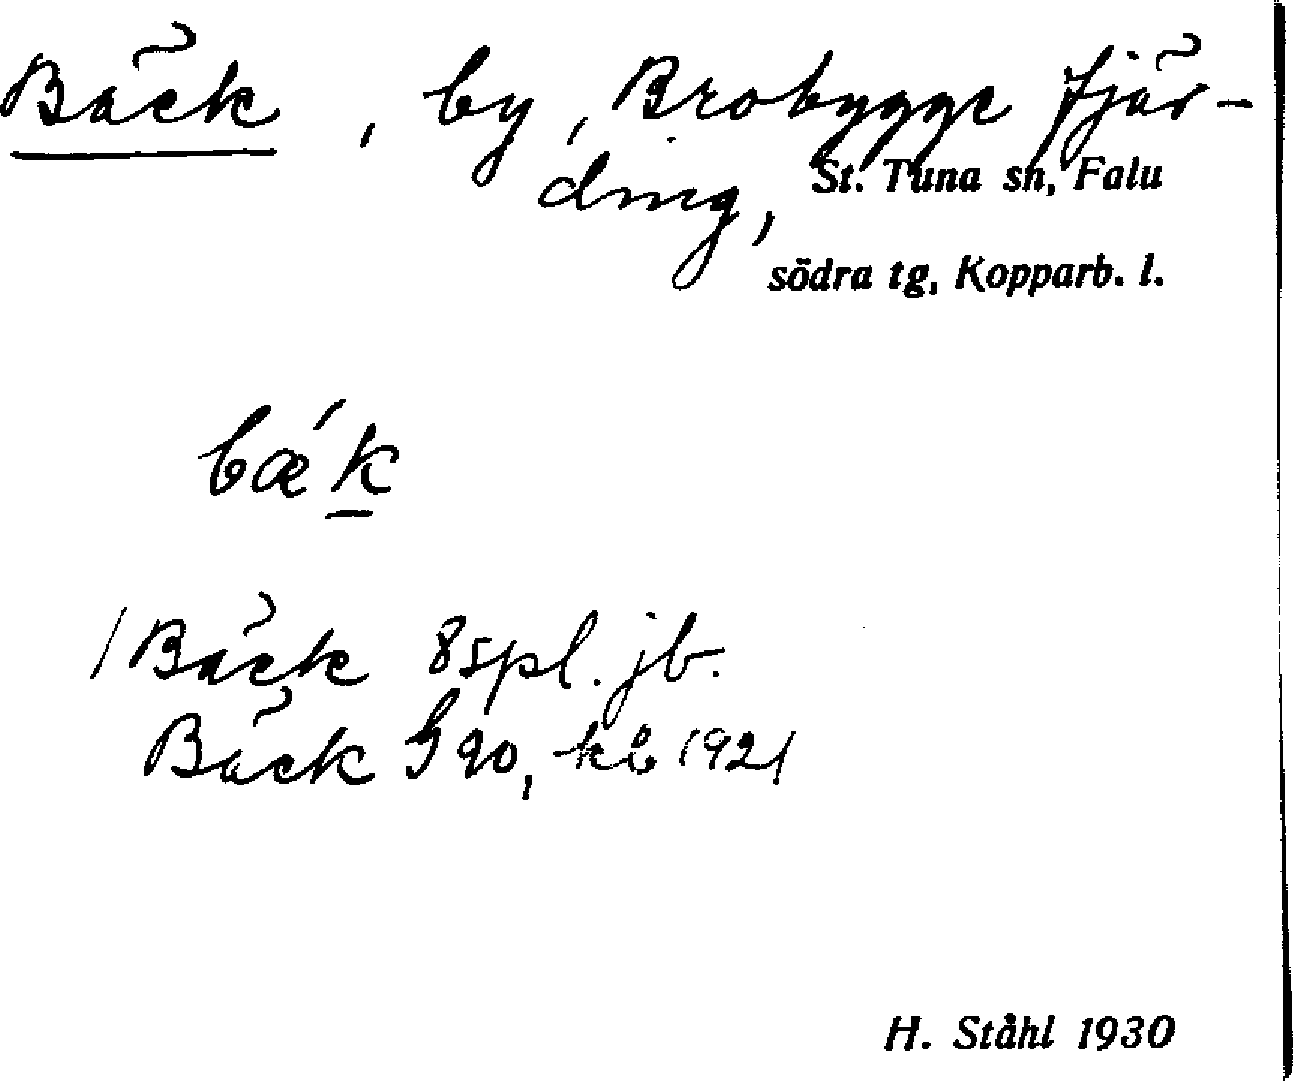 Bäck, by, Brobygge fjär-
ding, St. Tuna sn, Falu
södra tg, Kopparb. l.
bǽk
/ Bäck 8 spl. jb.
Bäck G 90, kb 1921
H. Ståhl 1930